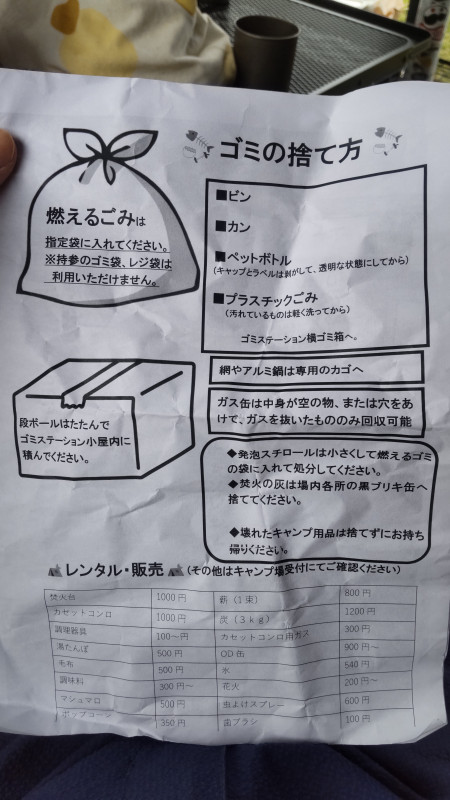 ゴミの捨て方
燃えるごみは
指定袋に入れてください。
※持参のゴミ袋、レジ袋は
利用いただけません。
■ビン
■カン
■ペットボトル
(キャップとラベルは剥がして、透明な状態にしてから)
■プラスチックごみ
(汚れているものは軽く洗ってから)
ゴミステーション横ゴミ箱へ。
網やアルミ鍋は専用のカゴへ
ガス缶は中身が空の物、または穴をあ
けて、ガスを抜いたもののみ回収可能
段ボールはたたんで
ゴミステーション小屋内に
積んでください。
◆発泡スチロールは小さくして燃えるゴミ
の袋に入れて処分してください。
◆焚火の灰は場内各所の黒ブリキ缶へ
捨ててください。
◆壊れたキャンプ用品は捨てずにお持ち
帰りください。
レンタル・販売 (その他はキャンプ場受付にてご確認ください)
焚火台 1000円 薪(1束) 800円
カセットコンロ 1000円 炭(3kg) 1200円
調理器具 100～円 カセットコンロ用ガス 300円
湯たんぽ 500円 OD缶 900円～
毛布 500円 氷 540円
調味料 300円～ 花火 200円～
マシュマロ 500円 虫よけスプレー 600円
ポップコーン 350円 歯ブラシ 100円